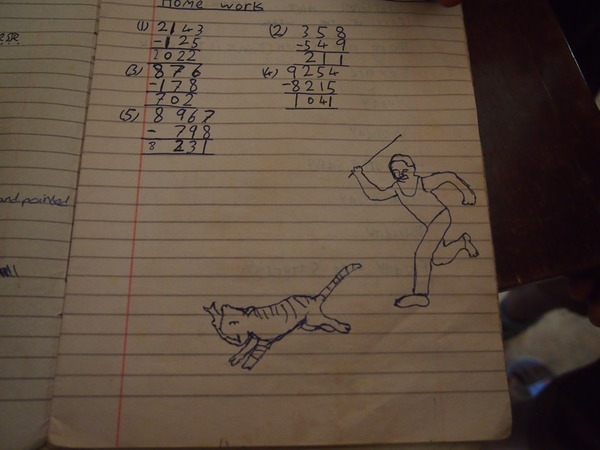 Home work
(1) 2143 (2) 358
-125 -549
2022 211
(3) 876 (4) 9254
-178 -8215
702 1041
(5) 8967
- 798
8 231
and painted